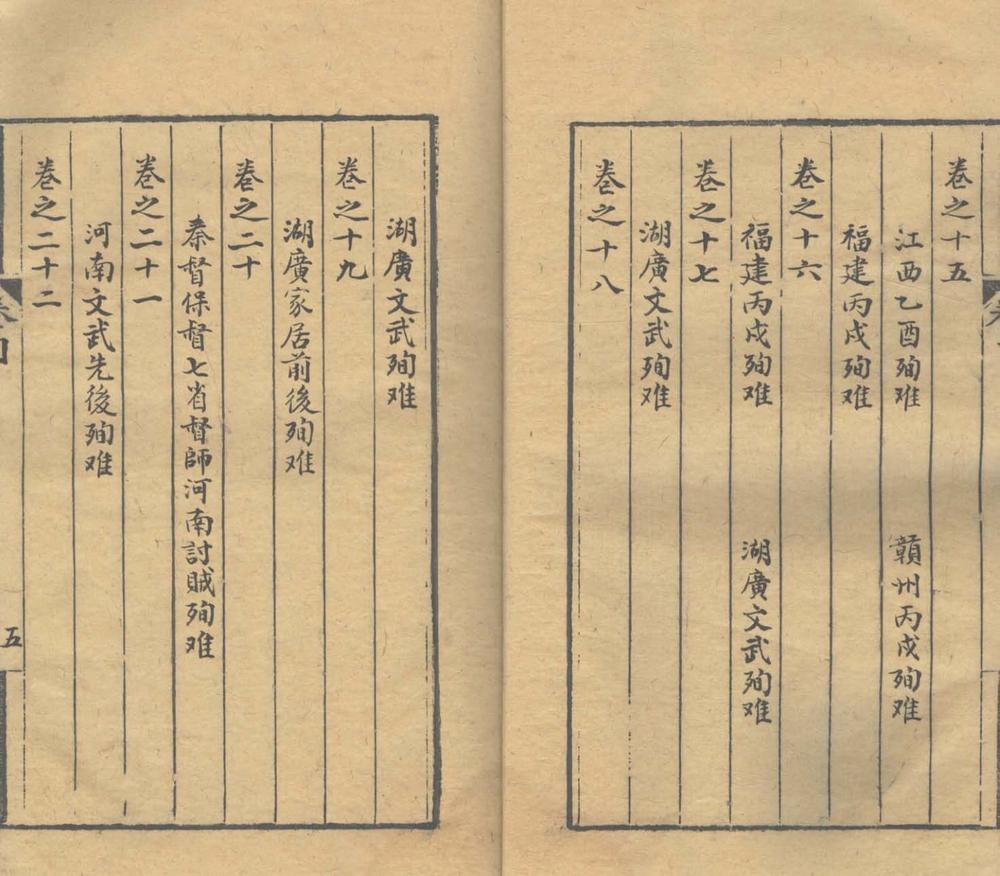 卷之十五
江西乙酉殉难　贛州丙戍殉难
福建丙戍殉难
卷之十六
福建丙戍殉难　湖廣文武殉难
卷之十七
湖廣文武殉难
卷之十八
湖廣文武殉难
卷之十九
湖廣家居前後殉难
卷之二十
秦督保督七省督師河南討賊殉难
卷之二十一
河南文武先後殉难
卷之二十二
五